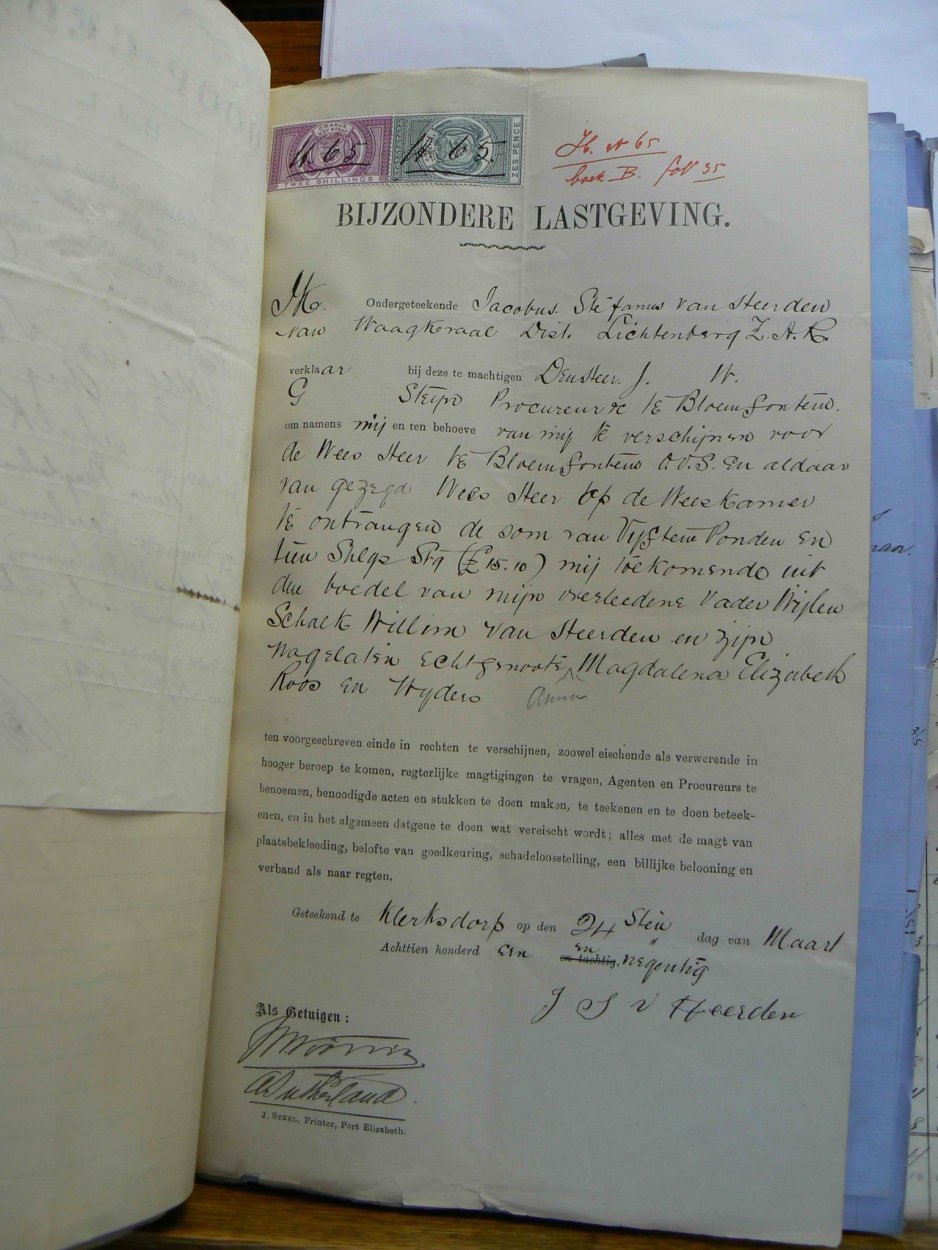 ORANJE
TWEE SHILLINGS
ZES PENCE
H 65
H 65.
H. N 65
boek B. fol 35
BIJZONDERE LASTGEVING.
IK Ondergeteekende Jacobus Stefanus van Heerden
van Waagkraal Dist. Lichtenberg Z. A. R.
verklaar bij deze te machtigen Den Heer J. W.
G. Steijn Procureur te Bloemfontein.
om namens mij en ten behoeve van mij te verschijnen voor
de Wees Heer te Bloemfontein O.V.S. en aldaar
van gezegd Wees Heer op de Weeskamer
te ontvangen de som van Vijftien Ponden en
tien Shlgs Stg (£15.10) mij toekomende uit
den boedel van mijn overledene Vader Wijlen
Schalk Willem van Heerden en zijn
nagelaten echtgenoote Magdalena Elizabeth
Roos en Wyders Anna
ten voorgeschreven einde in rechten te verschijnen, zoowel eischende als verwerende in
hooger beroep te komen, regterlijke magtigingen te vragen, Agenten en Procureurs te
benoemen, benoodigde acten en stukken te doen maken, te teekenen en te doen beteek-
enen, en in het algemeen datgene te doen wat vereischt wordt; alles met de magt van
plaatsbekleeding, belofte van goedkeuring, schadeloosstelling, een billijke belooning en
verband als naar regten.
Geteekend te Klerksdorp op den 24 Sten dag van Maart
Achttien honderd een en en tachtig. negentig
J S v Heerden
Als Getuigen:
A Sutherland
J. STEEL, Printer, Port Elizabeth.